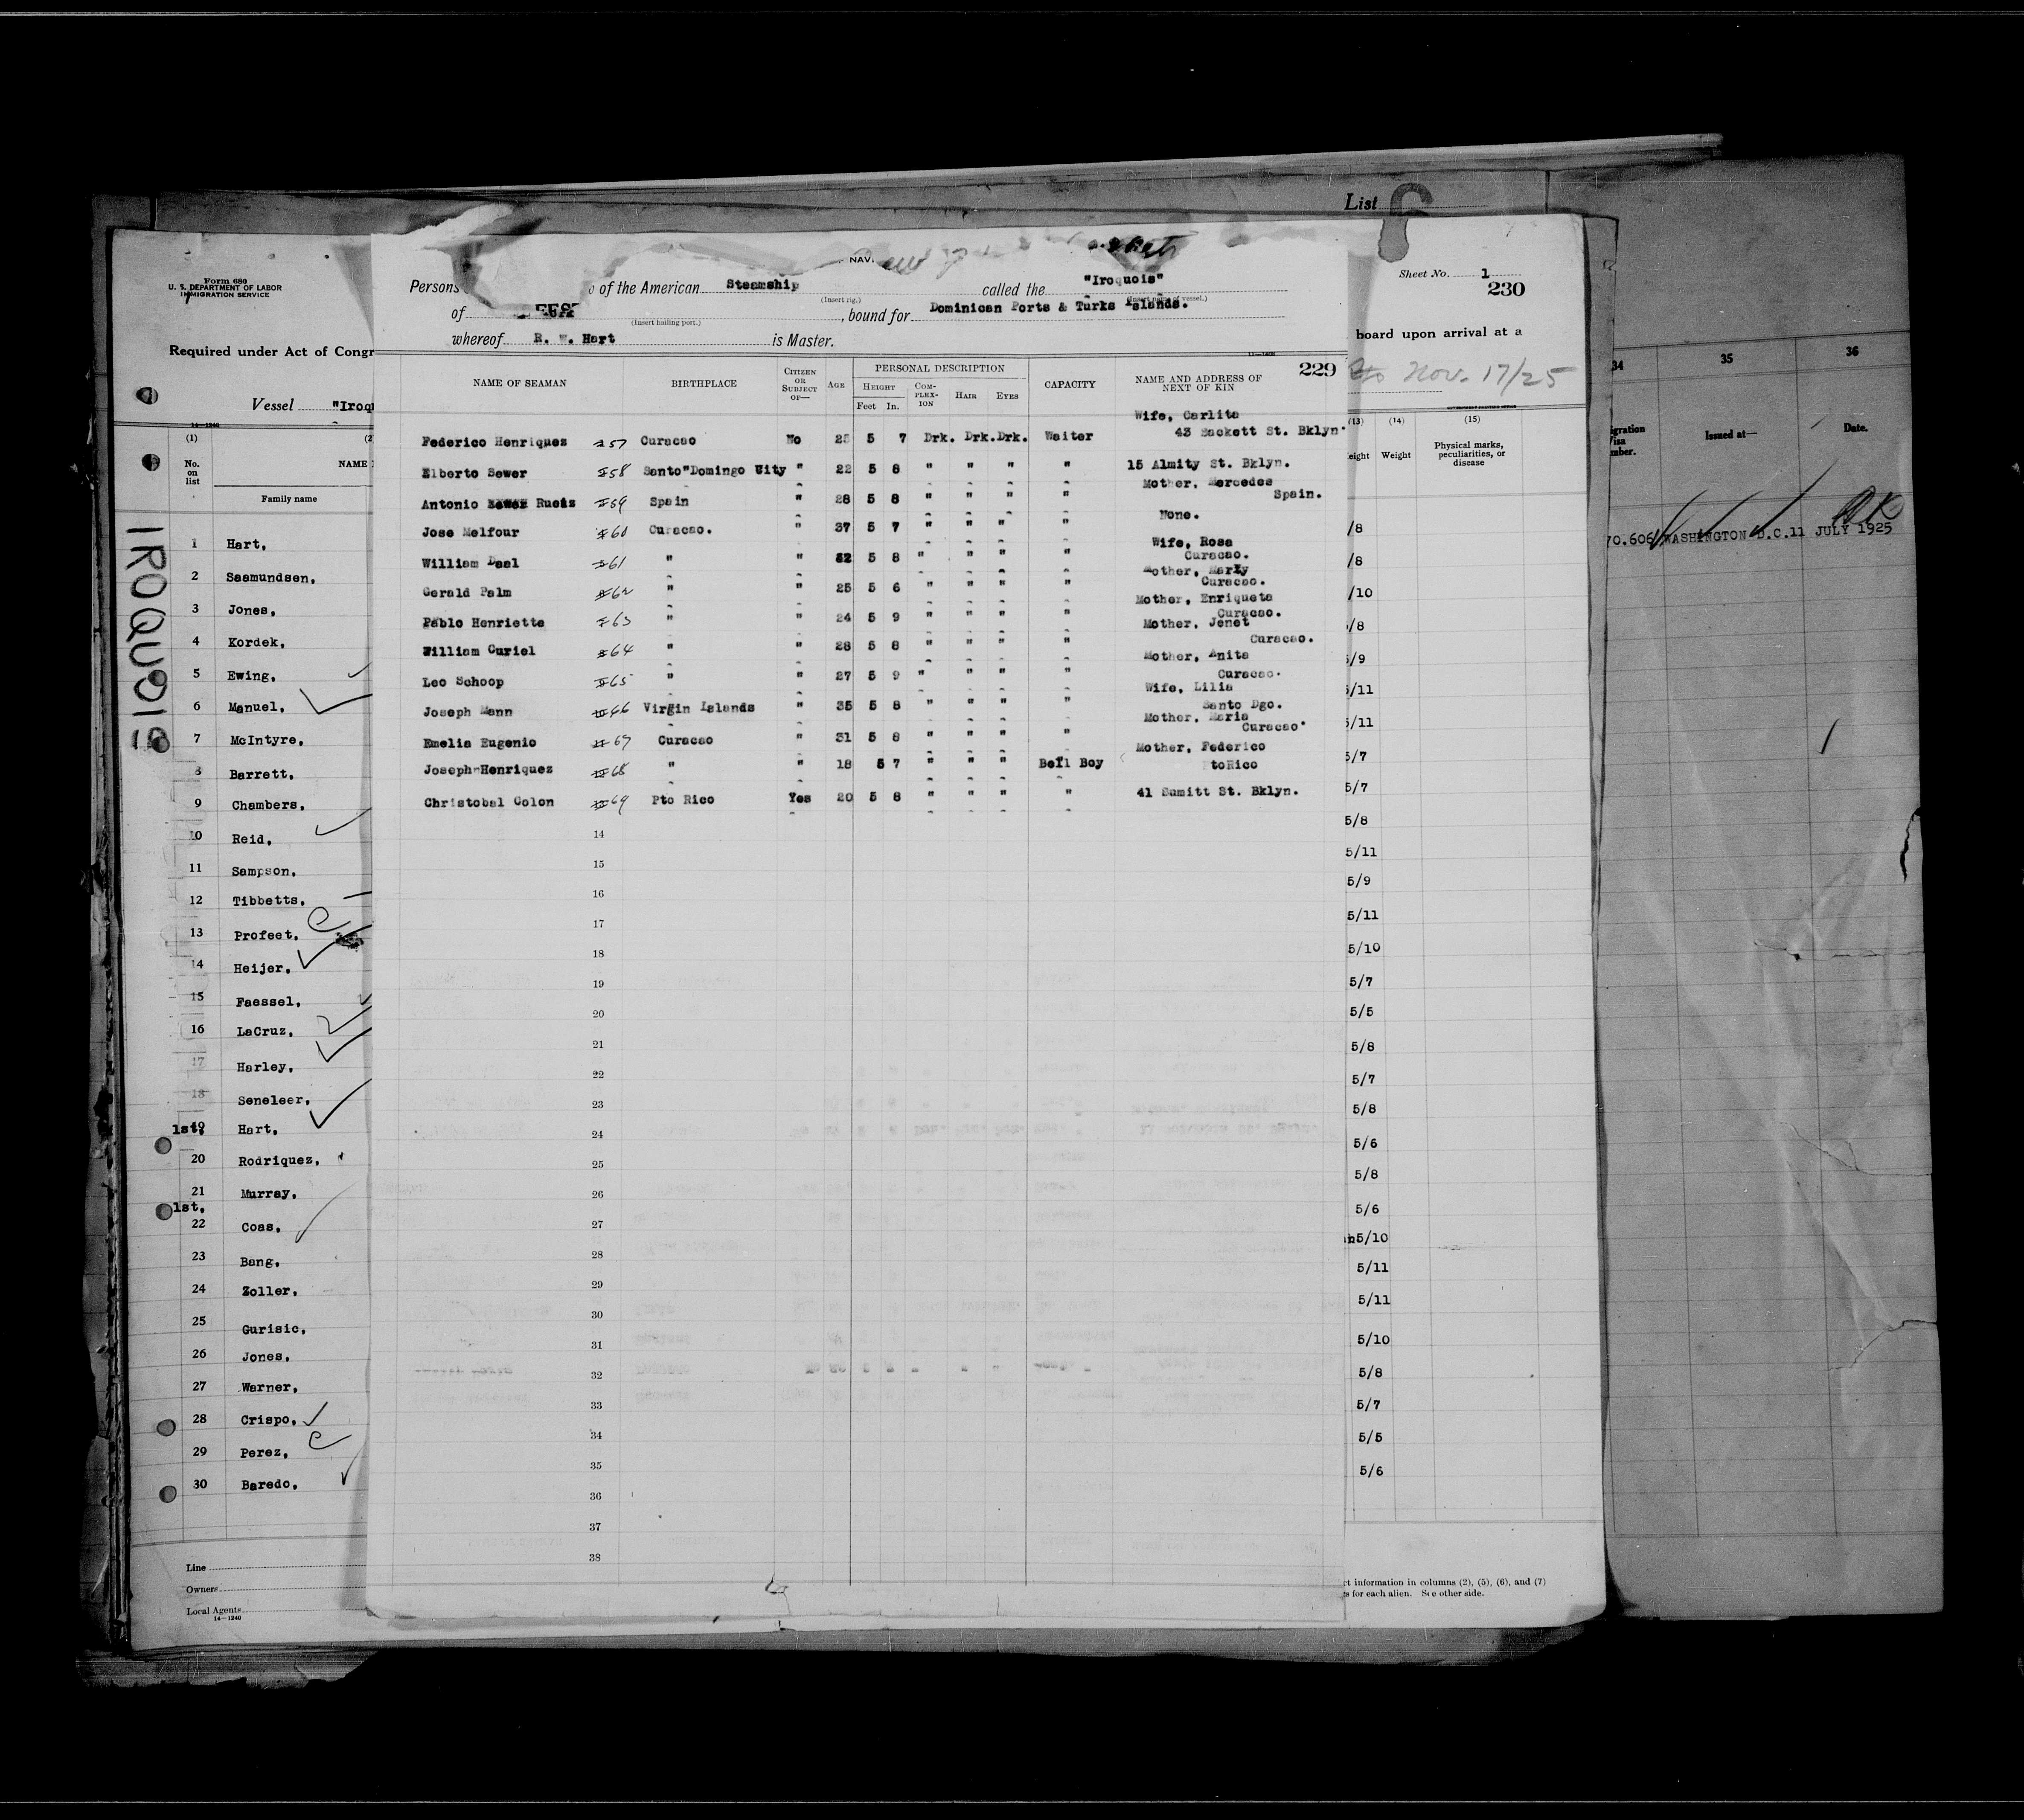 List
Form 680
U. S. DEPARTMENT OF LABOR
IMMIGRATION SERVICE
Required under Act of Congr
Vessel "Iroq
14-1240
(1)
(2
No.
on
list
NAME
Family name
IROQUOIS
1 Hart,
2 Saamundsen,
3 Jones,
4 Kordek,
5 Ewing,
6 Manuel,
7 McIntyre,
8 Barrett,
9 Chambers,
10 Reid,
11 Sampson,
12 Tibbetts,
13 Profeet,
14 Heijer,
15 Faessel,
16 LaCruz,
17 Harley,
18 Seneleer,
1st, 19 Hart,
20 Rodriquez,
21 Murray,
1st.
22 Coas,
23 Bang,
24 Zoller,
25 Gurisic,
26 Jones,
27 Warner,
28 Crispo,
29 Perez,
30 Baredo,
Line
Owners
Local Agents
14-1240
NAV
Persons of the American Steamship called the "Iroquois"
(Insert rig.) (Insert name of vessel.)
of , bound for Dominican Ports & Turks Islands.
(Insert hailing port.)
whereof R. W. Hart is Master.
11-1408
229
NAME OF SEAMAN BIRTHPLACE CITIZEN OR SUBJECT OF— AGE PERSONAL DESCRIPTION CAPACITY NAME AND ADDRESS OF NEXT OF KIN
HEIGHT COMPLEXION HAIR EYES
Feet In.
Wife, Carlita
Federico Henriquez 57 Curacao No 25 5 7 Drk. Drk. Drk. Waiter 43 Sackett St. Bklyn.
Elberto Sewer 58 Santo"Domingo City " 22 5 8 " " " " 15 Almity St. Bklyn.
Mother, Mercedes
Antonio Sewer Rueis 59 Spain " 28 5 8 " " " " Spain.
None.
Jose Melfour 60 Curacao. " 37 5 7 " " " "
Wife, Rosa
William Daal 61 " " 32 5 8 " " " " Curacao.
Mother, Marky
Gerald Palm 62 " " 25 5 6 " " " " Curacao.
Mother, Enriqueta
Pablo Henriette 63 " " 24 5 9 " " " " Curacao.
Mother, Jenet
William Curiel 64 " " 28 5 8 " " " " Curacao.
Mother, Anita
Leo Schoop 65 " " 27 5 9 " " " " Curacao.
Wife, Lilia
Joseph Mann 66 Virgin Islands " 35 5 8 " " " " Santo Dgo.
Mother, Maria
Emelia Eugenio 67 Curacao " 31 5 8 " " " " Curacao.
Mother, Federico
Joseph-Henriquez 68 " " 18 5 7 " " " Bell Boy PtoRico
Christobal Colon 69 Pto Rico Yes 20 5 8 " " " " 41 Sumitt St. Bklyn.
14
15
16
17
18
19
20
21
22
23
24
25
26
27
28
29
30
31
32
33
34
35
36
37
38
Sheet No. 1
230
board upon arrival at a
Nov. 17/25
GOVERNMENT PRINTING OFFICE
(13) (14) (15)
eight Weight Physical marks, peculiarities, or disease
/8
/8
/10
/8
5/9
5/11
5/11
5/7
5/7
5/8
5/11
5/9
5/11
5/10
5/7
5/5
5/8
5/7
5/8
5/6
5/8
5/6
5/10
5/11
5/11
5/10
5/8
5/7
5/5
5/6
ct information in columns (2), (5), (6), and (7)
s for each alien. See other side.
34 35 36
igration
isa
mber.
Issued at—
Date.
OK
70.606 WASHINGTON D.C. 11 JULY 1925